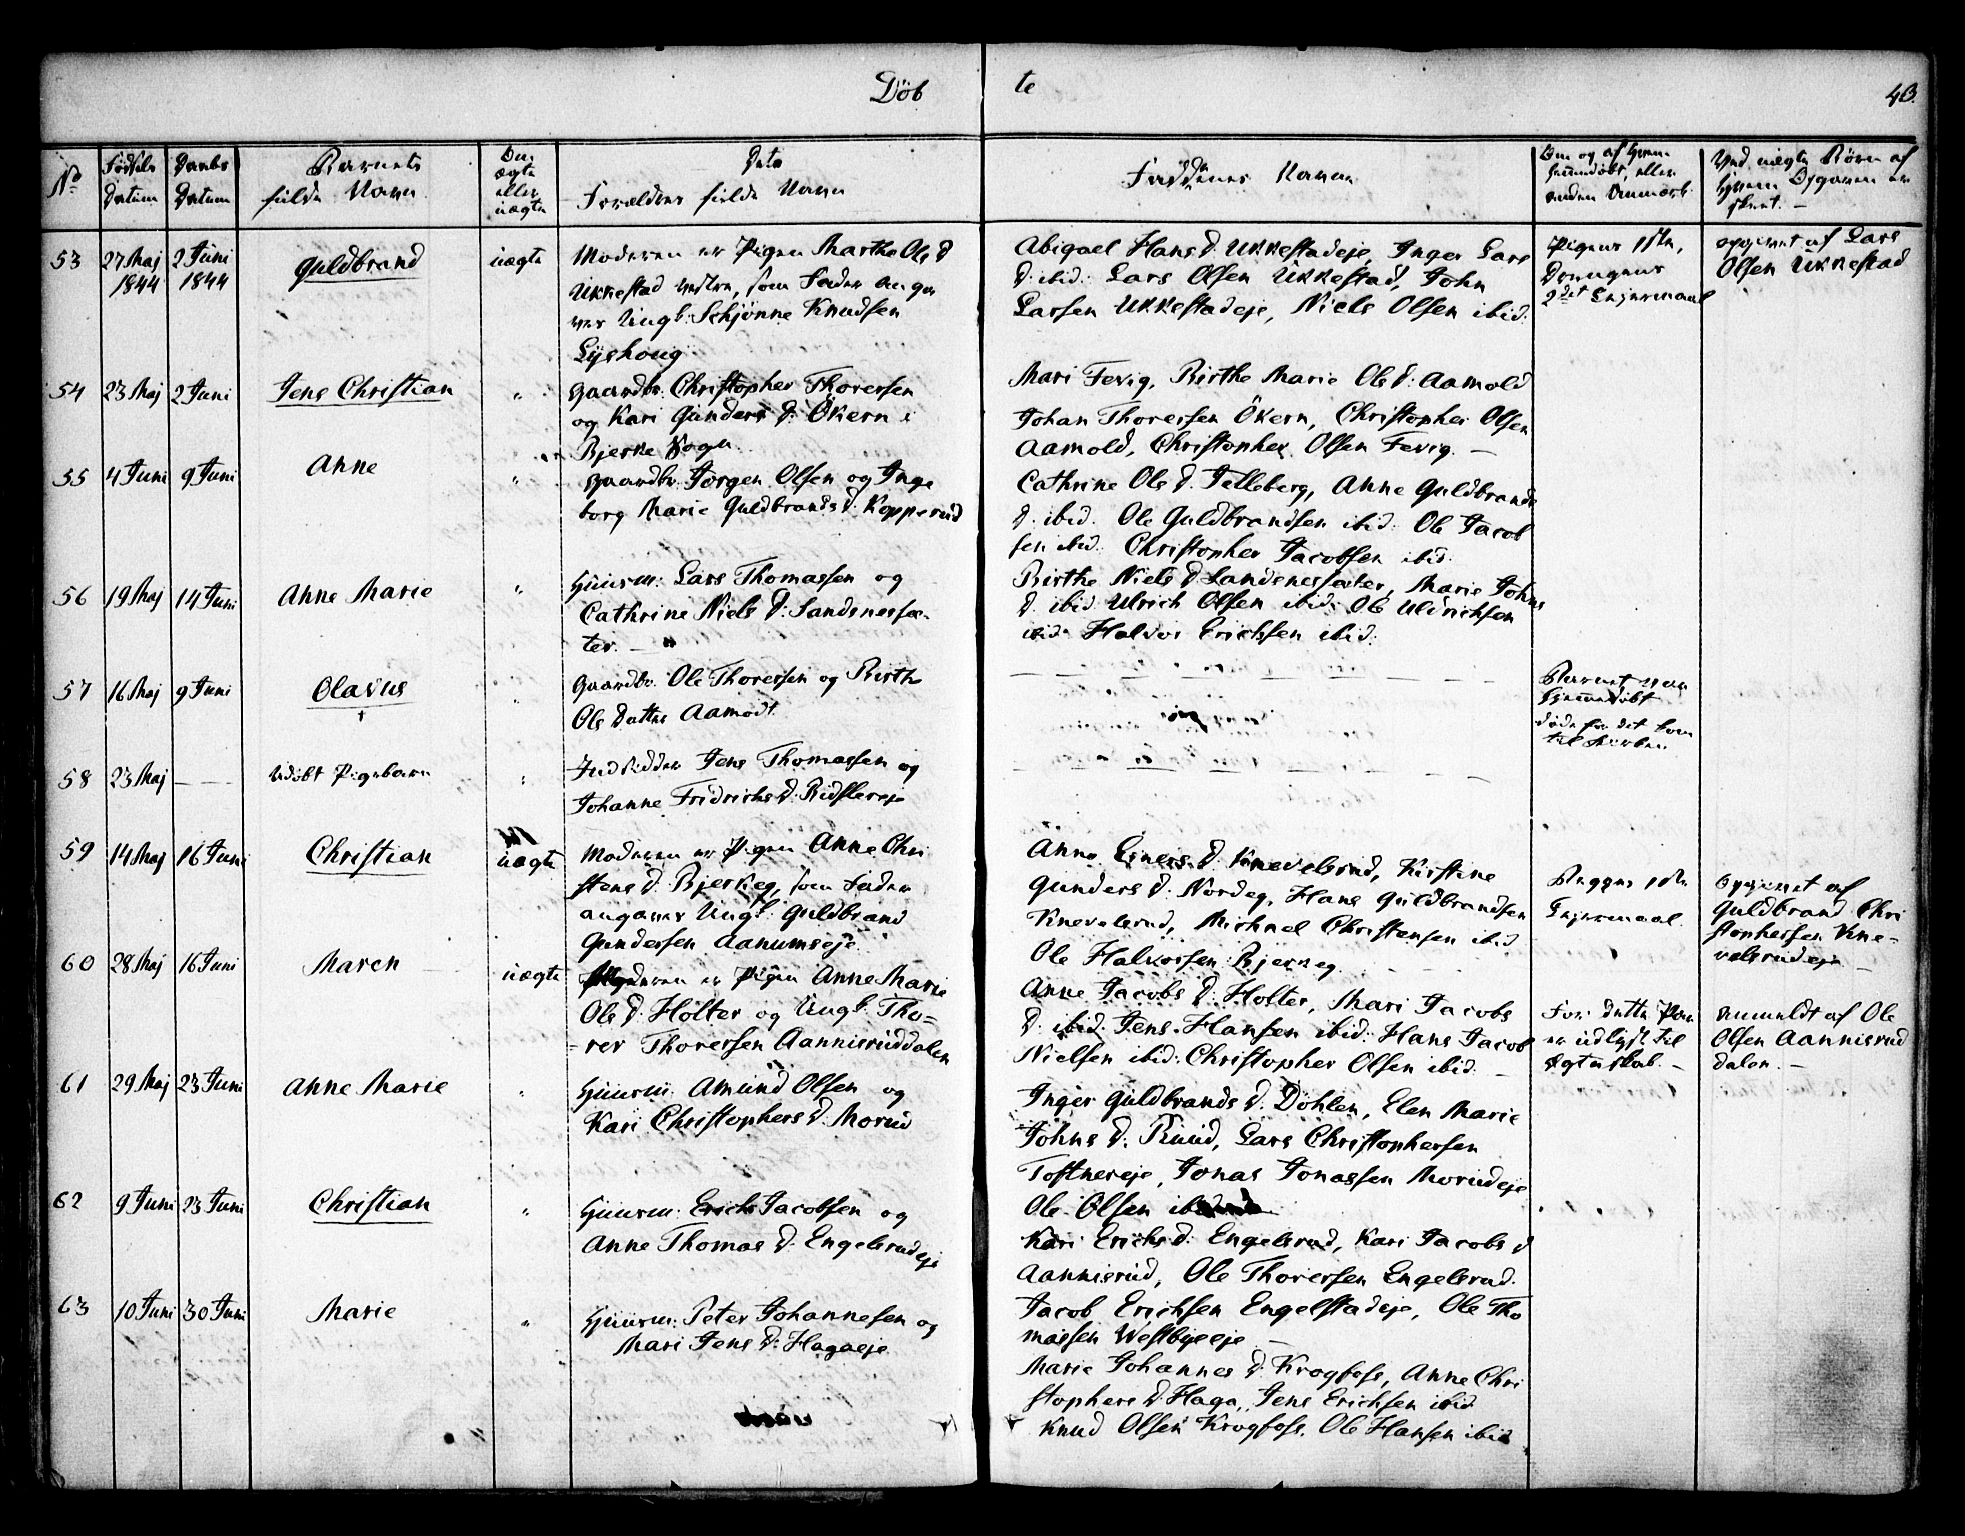 Döb te 43.
No
Fødsels Datum
Daabs Datum
Barnets fulde Navn
Om ægte eller uægte
Dets Forældres fulde Navn
Faddernes Navne
Om og af hvem hjemmedøbt, eller anden Anmærk
Ved uægte Børn af hvem Opgaven er skeet. –
53 27 Maj 1844 2 Juni 1844 Guldbrand uægte
Moderen er Pigen Marthe Ols D
Ukkestad vestre, som Fader angi
ves Ungk: Schjønne Knudsen
Lyshoug
Abigael Hans D. Ukkestadeje, Inger Lars
D: ibid: Lars Olsen Ukkestad, John
Larsen Ukkestadeje, Niels Olsen ibid:
Pigens 1ste,
Drengens
2det Lejermaal
opgivet af Lars
Olsen Ukkestad
54 23 Maj 2 Juni Jens Christian "
Gaardbr. Christopher Thoresen
og Kari Gunders D: Økern i
Bjerke Sogn
Mari Fevig, Birthe Marie Ols D: Aamold
Johan Thoresen Økern, Christopher Olsen
Aamold, Christopher Olsen Fevig. –
55 4 Juni 9 Juni Anne "
Gaardbr. Jørgen Olsen og Inge
borg Marie Guldbrands D. Kopperud
Cathrine Ols D. Falleberg, Anne Guldbrands
D. ibid. Ole Guldbrandsen ibid. Ole Jacob
sen ibid. Christopher Jacobsen ibid.
56 19 Maj 14 Juni Anne Marie "
Huusm: Lars Thomassen og
Cathrine Niels D: Sandnessæ-
ter. –
Birthe Niels D Sandnessæter, Marie Johns
D. ibid Ulrich Olsen ibid. Ole Uldrichsen
ibid. Halvor Erichsen ibid.
57 16 Maj 9 Juni Olavus "
Gaardbr. Ole Thoresen og Birthe
Ols Datter Aamodt
Barnet var
hjemmedøbt
døde før det kom
til Kirken
58 23 Maj — — udøbt Pigebarn "
Indsidder Jens Thomassen og
Johanne Fridrichs D. Ridslereje
59 14 Maj 16 Juni Christian uægte
Moderen er Pigen Anne Chri
stens D. Bjerkeg, som Fader
angives Ungk: Guldbrand
Gundersen Aanumseje
Anne Einers D. Knevelsrud, Kirstine
Gunders D. Nordeg, Hans Guldbrandsen
Knevelsrud, Michael Christensen ibid
Ole Halvorsen Bjerkeg
Begges 1ste
Lejermaal
Opgivet af
Guldbrand Chri
stophersen Kne-
velsrudeje –
60 28 Maj 16 Juni Maren uægte
Moderen er Pigen Anne Marie
Ols D. Holter og Ungk. Tho-
rer Thoresen Aannisruddalen
Anne Jacobs D. Holter, Mari Jacobs
D. ibid. Jens Hansen ibid: Hans Jacob
Nielsen ibid: Christopher Olsen ibid. –
For dette Par
er udlyst til
Ægteskab. –
anmeldt af Ole
Olsen Aannisrud
dalen. –
61 29 Maj 23 Juni Anne Marie "
Huusm: Amund Olsen og
Kari Christophers D. Morud
Inger Guldbrands D. Døhlen, Elen Marie
Johns D. Ruud, Lars Christophersen
Toftnereje, Jonas Jonassen Morudeje
Ole Olsen ibid
62 9 Juni 23 Juni Christian "
Huusm: Erich Jacobsen og
Anne Thomas D. Engelsrudeje
Kari Erichs D. Engelsrud, Kari Jacobs D
Aannisrud, Ole Thoresen Engelsrud.
Jacob Erichsen Engelstadeje, Ole Tho
massen Westbyeeje –
63 10 Juni 30 Juni Marie "
Huusm: Peter Johannesen og
Mari Jens D: Hagaeje
Marie Johannes D. Krogfoss, Anne Chri
stophers D. Haga, Jens Erichsen ibid
Knud Olsen Krogfoss, Ole Hansen ibid